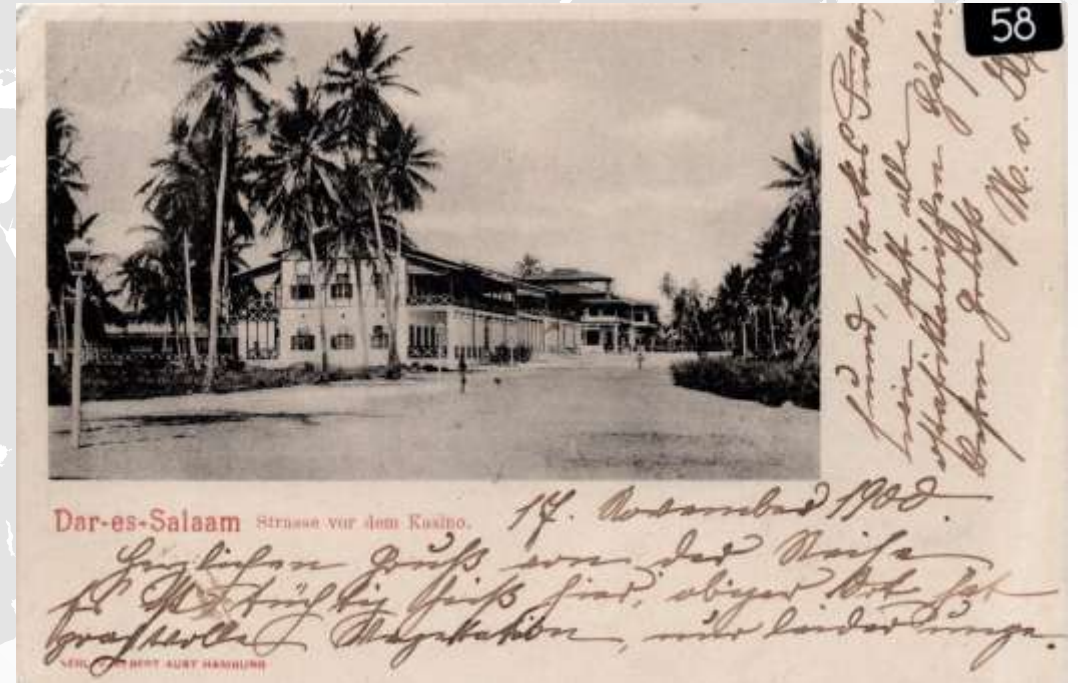 58
Dar-es-Salaam Strasse vor dem Kasino. 17. November 1900.
Herzlichen Gruß von der Reise
Es ist tüchtig heiß hier, obiger Ort hat
prachtvolle Vegetation, nur leider unge-
sund, starkes Fieber,
wie fast alle
ostafrikanischen Häfen
M. v.
VERL. V. ALBERT AUST HAMBURG